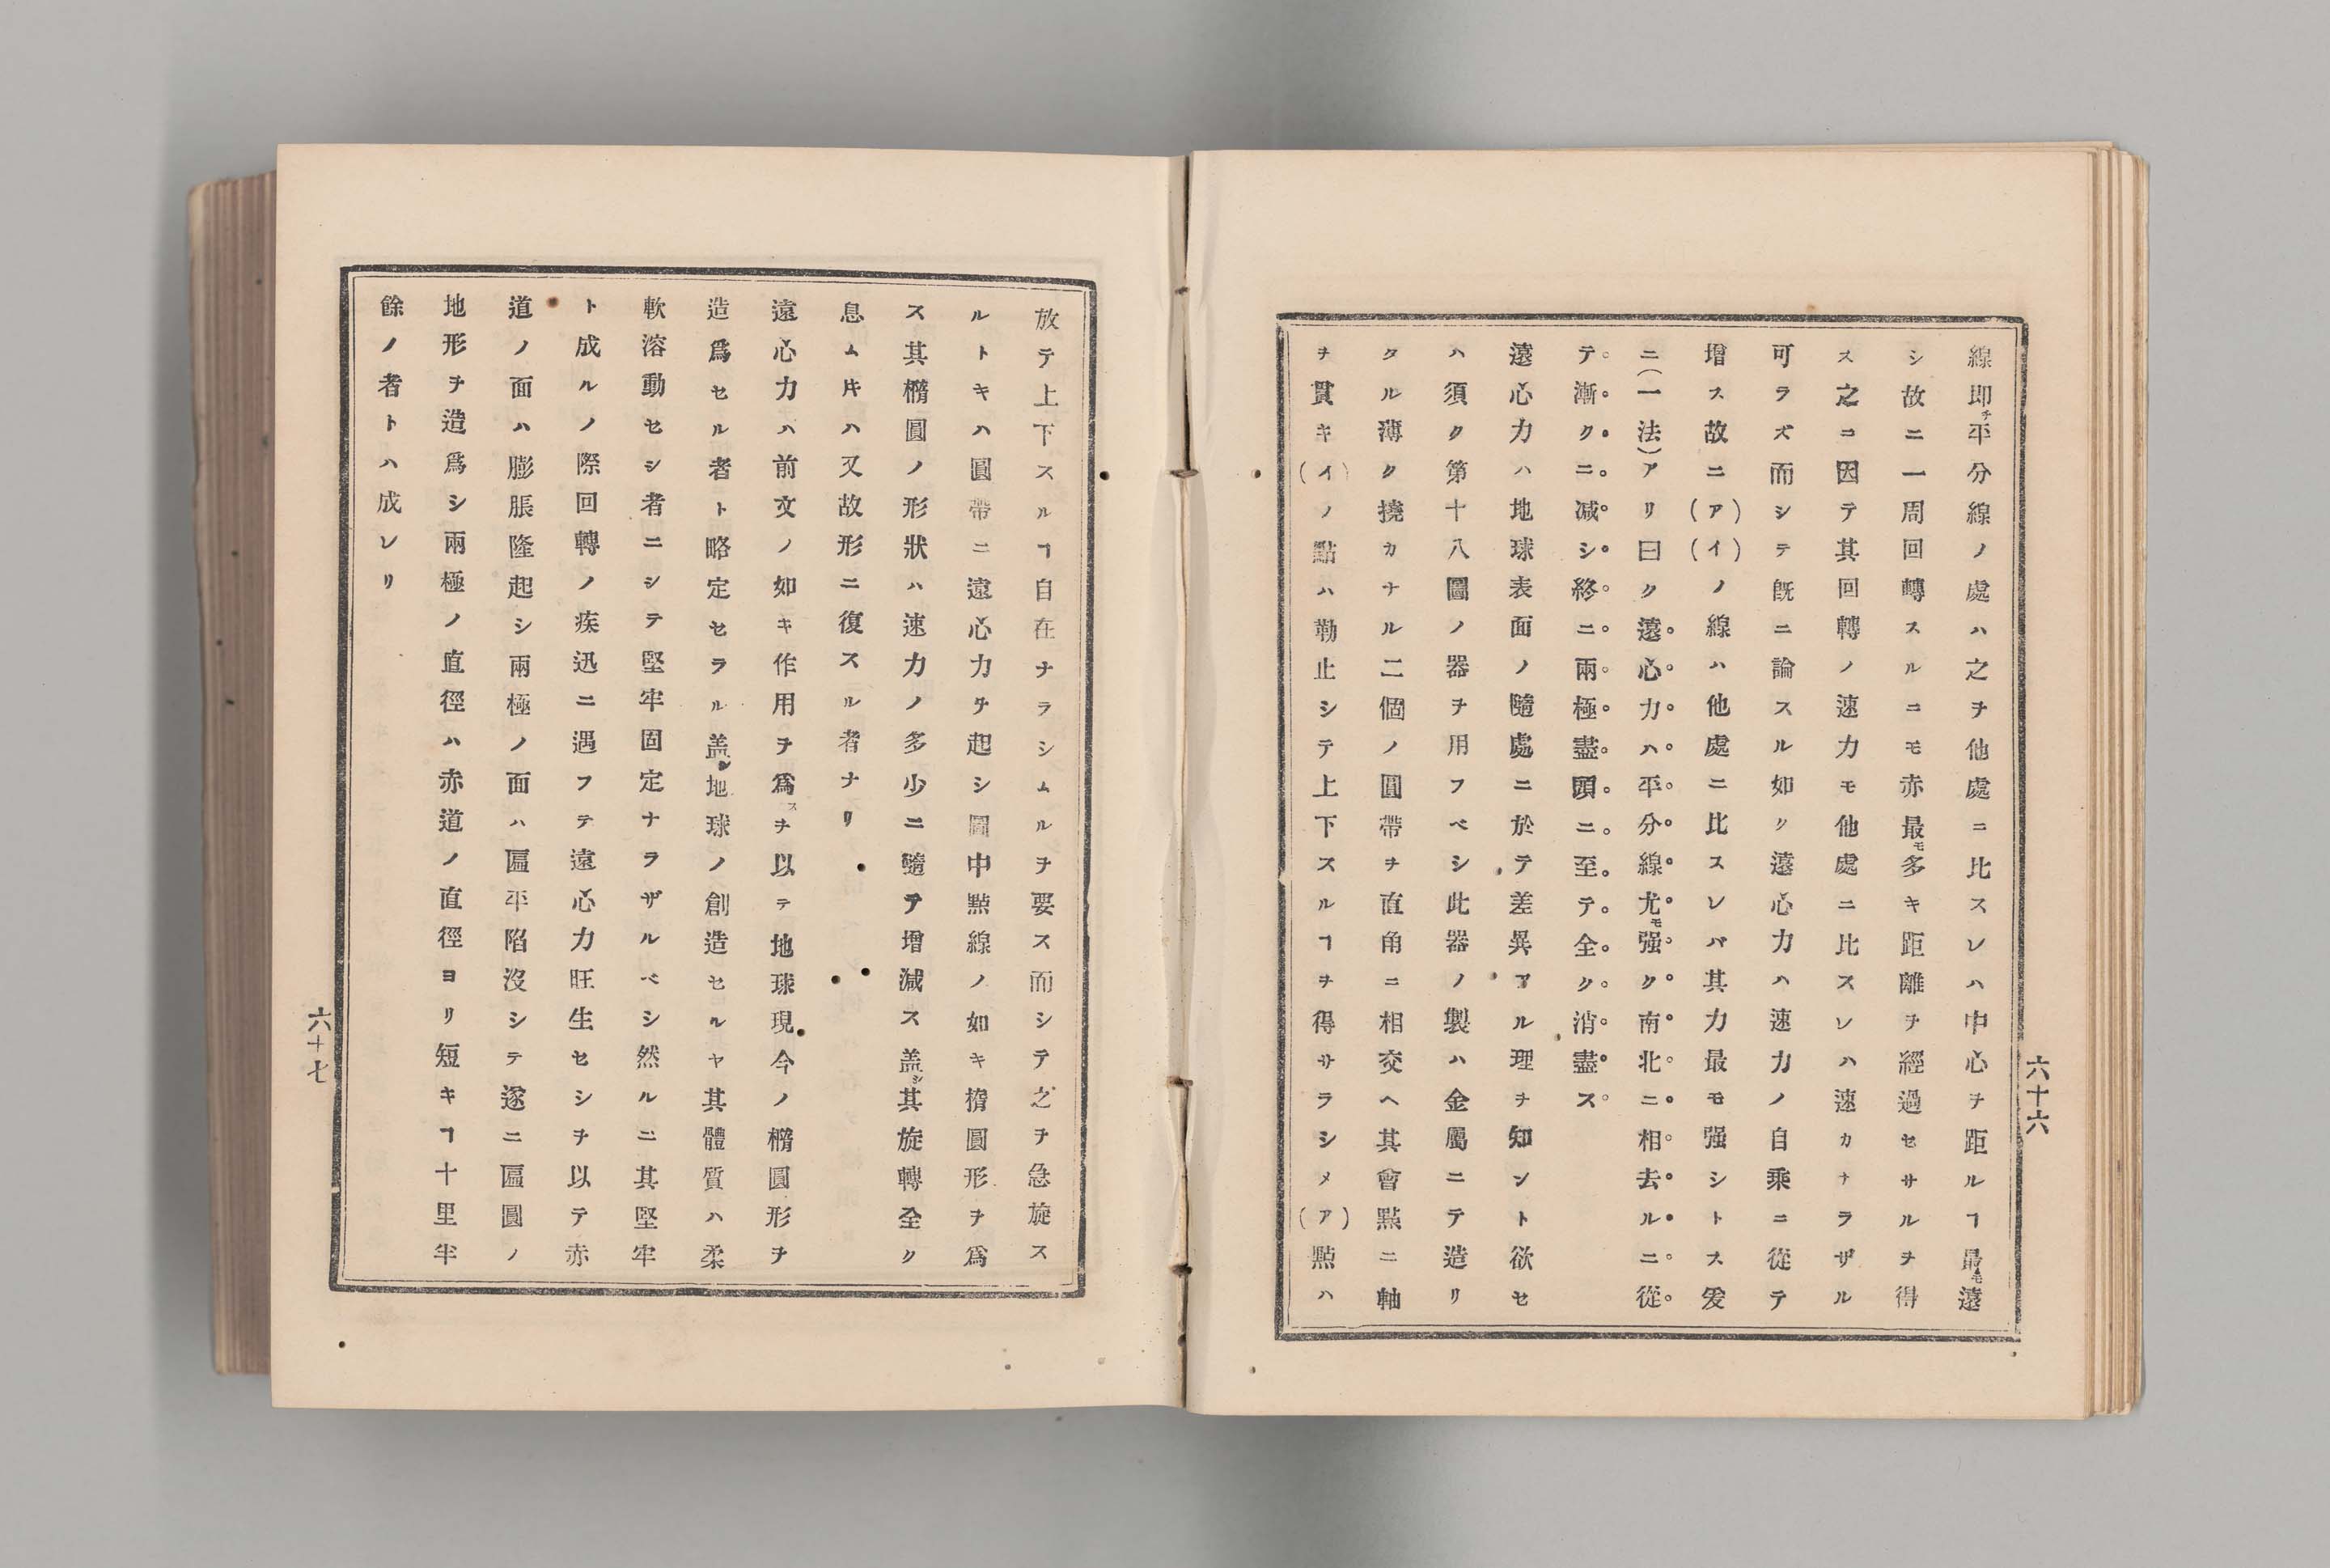 線即チ平分線ノ處ハ之ヲ他處ニ比スレハ中心ヲ距ルヿ最モ遠
シ故ニ一周回轉スルニモ亦最モ多キ距離ヲ經過セサルヲ得
ス之ニ因テ其回轉ノ速力モ他處ニ比スレハ速カナラザル
可ラズ而シテ既ニ論スル如ク遠心力ハ速力ノ自乘ニ從テ
增ス故ニ(ア)(イ)ノ線ハ他處ニ比スレバ其力最モ强シトス爰
ニ(一法)アリ曰ク遠心力ハ平分線尤モ强ク南北ニ相去ルニ從
テ漸クニ减シ終ニ兩極盡頭ニ至テ全ク消盡ス
遠心力ハ地球表面ノ隨處ニ於テ差異アル理ヲ知ント欲セ
ハ須ク第十八圖ノ器ヲ用フベシ此器ノ製ハ金屬ニテ造リ
タル薄ク撓カナル二個ノ圓帶ヲ直角ニ相交ヘ其會點ニ軸
ヲ貫キ(イ)ノ點ハ勒止シテ上下スルヿヲ得サラシメ(ア)點ハ
六十六
放テ上下スルヿ自在ナラシムルヲ要ス而シテ之ヲ急旋ス
ルトキハ圓帶ニ遠心力ヲ起シ圖中點線ノ如キ橢圓形ヲ爲
ス其橢圓ノ形狀ハ速力ノ多少ニ隨テ增减ス盖シ其旋轉全ク
息ム片ハ又故形ニ復スル者ナリ
遠心力ハ前文ノ如キ作用ヲ爲スヲ以テ地球現今ノ橢圓形ヲ
造爲セル者ト略定セラル盖シ地球ノ創造セルヤ其體質ハ柔
軟溶動セシ者ニシテ堅牢固定ナラザルベシ然ルニ其堅牢
ト成ルノ際回轉ノ疾迅ニ遇フテ遠心力旺生セシヲ以テ赤
道ノ面ハ膨脹隆起シ兩極ノ面ハ匾平陷沒シテ遂ニ匾圓ノ
地形ヲ造爲シ兩極ノ直徑ハ赤道ノ直徑ヨリ短キヿ十里半
餘ノ者トハ成レリ
六十七